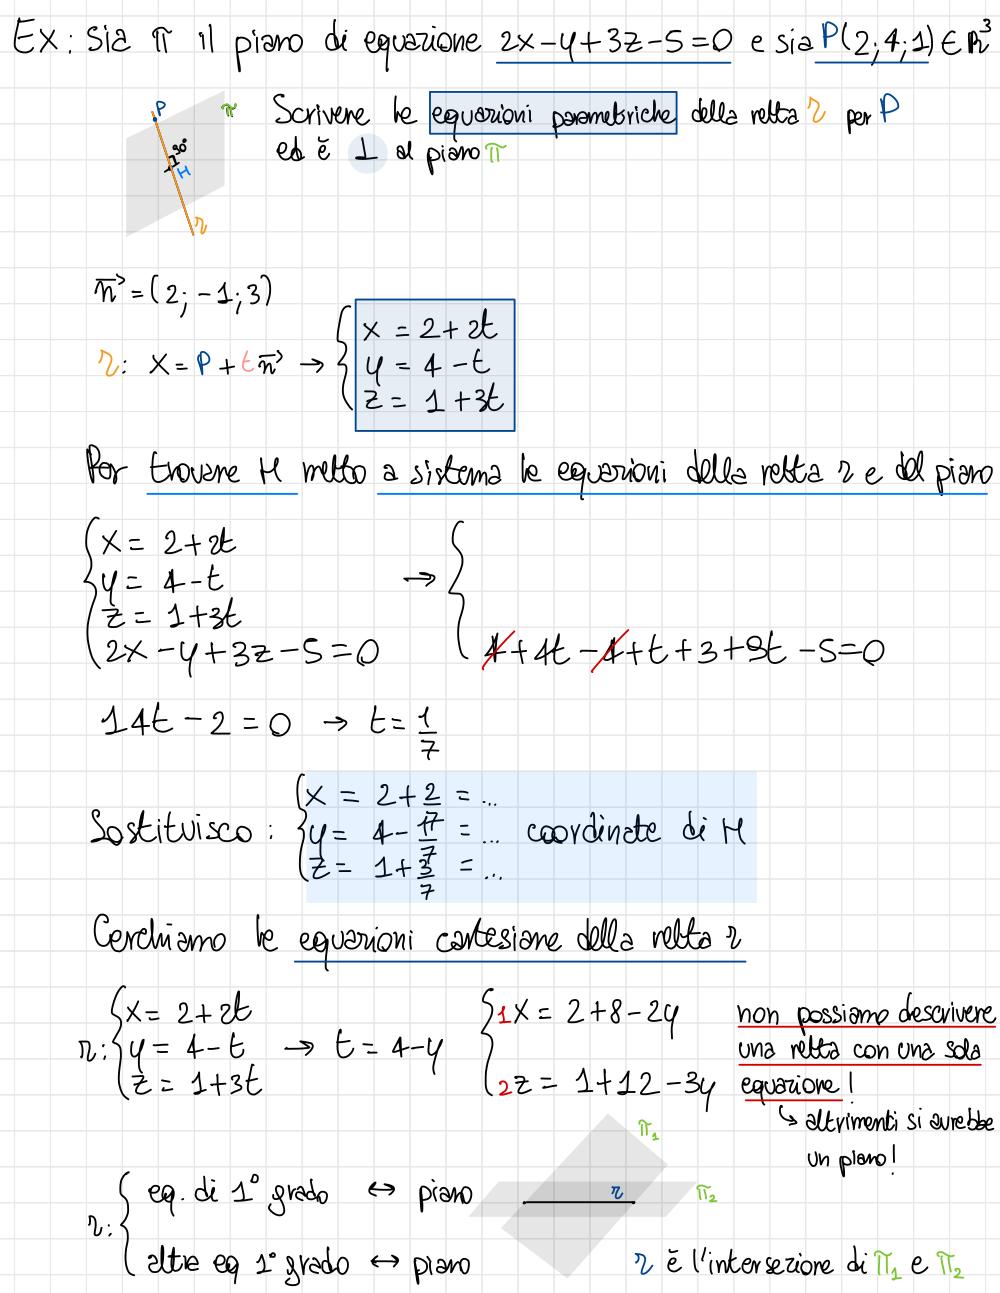 Ex: sia π il piano di equazione 2x-y+3z-5=0 e sia P(2;4;1)∈ℝ³
P π 90° H r
Scrivere le equazioni parametriche della retta r per P
ed è ⊥ al piano π
n⃗=(2;-1;3)
r: X=P+tn⃗ → { x = 2+2t
y = 4-t
z = 1+3t
Per trovare H metto a sistema le equazioni della retta r e del piano
{ x = 2+2t
y = 4-t
z = 1+3t
2x-y+3z-5=0 → { 4+4t-4+t+3+9t-5=0
14t-2=0 → t=1/7
Sostituisco: { x = 2+2/7 = ...
y = 4-1/7 = ... coordinate di H
z = 1+3/7 = ...
Cerchiamo le equazioni cartesiane della retta r
r: { x = 2+2t
y = 4-t → t=4-y
z = 1+3t
{ 1 x = 2+8-2y
2 z = 1+12-3y
non possiamo descrivere
una retta con una sola
equazione!
↳ altrimenti si avrebbe
un piano!
r: { eq. di 1° grado ↔ piano
altre eq 1° grado ↔ piano
π₁
r π₂
r è l'intersezione di π₁ e π₂